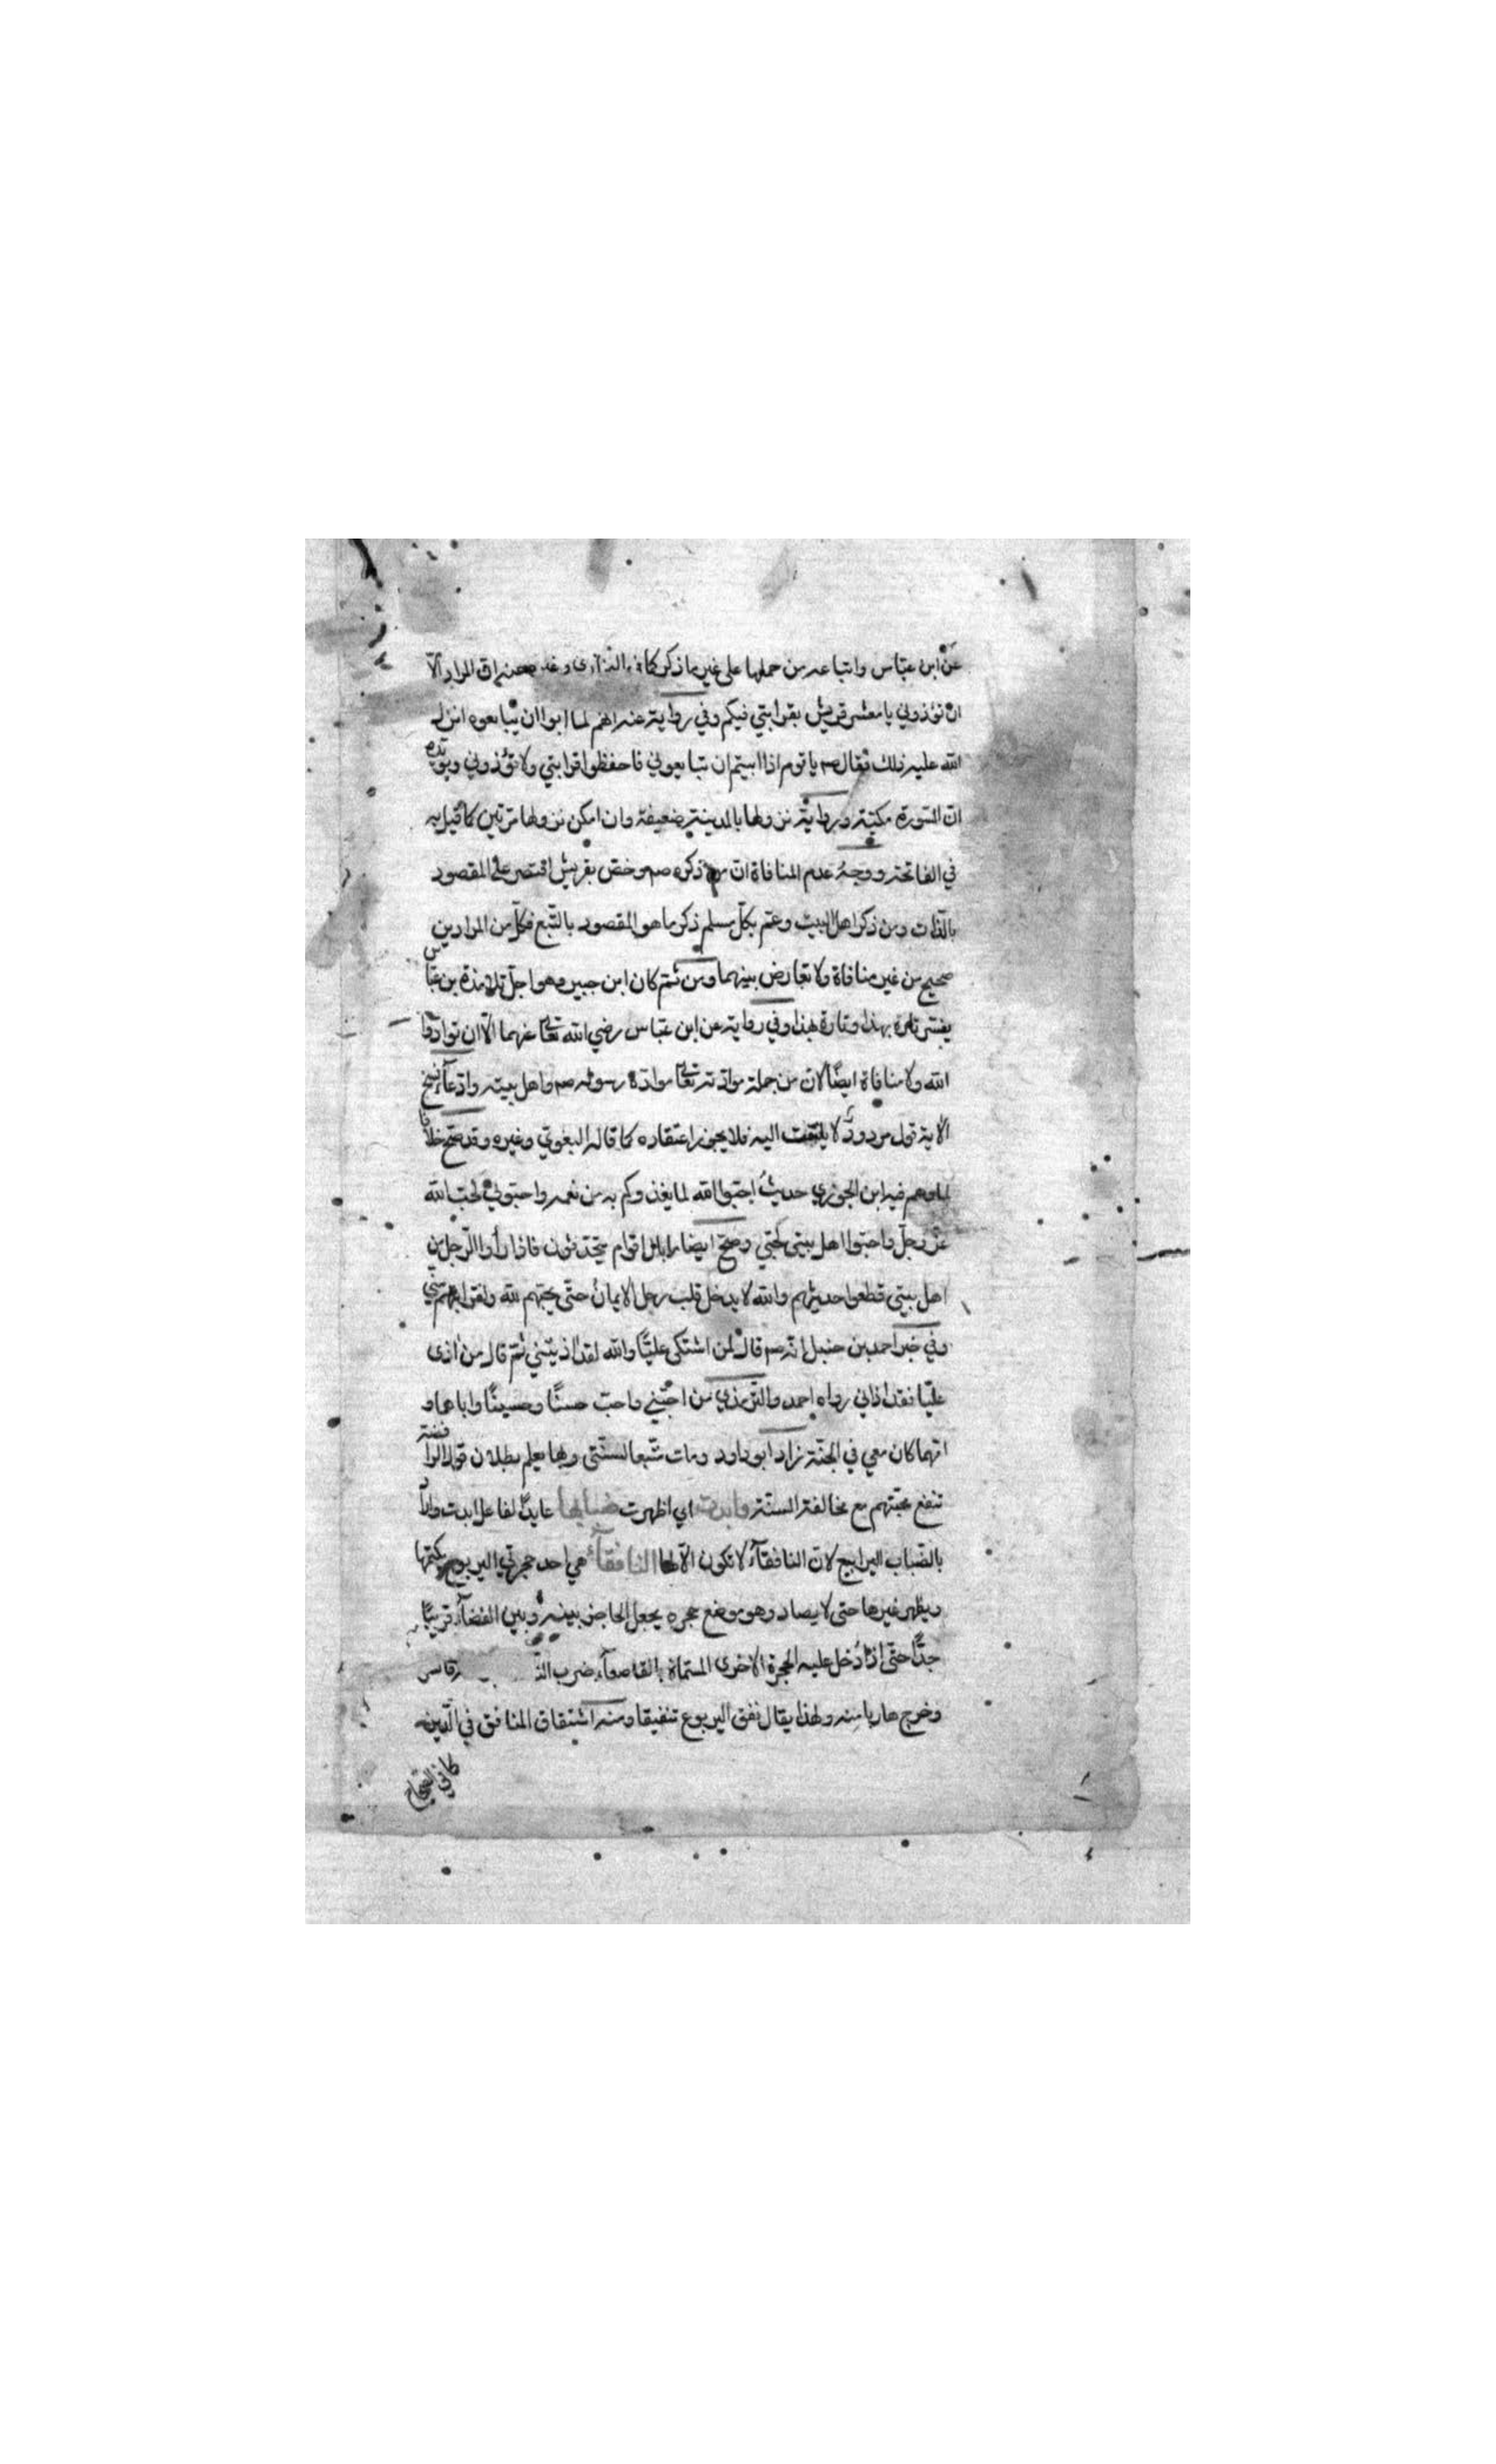 عن ابن عبّاس واتباعه من حملها على غير ما ذكر كما في البخاري وغيره عنه انّ المراد الّا
ان تؤذوني يا معشر قريش بقرابتي فيكم وفي رواية عنه انهم لما ابوا ان يبايعوه انزل
الله عليه ذلك فقال صم يا قوم اذا ابيتم ان تبايعوني فاحفظوا قرابتي ولا تؤذوني ويؤيّده
انّ السّورة مكيّة ورواية نزولها بالمدينة ضعيفة وان امكن نزولها مرّتين كما قيل به
في الفاتحة ووجهُ عدم المنافاة انّ من ذكره صم وخصّ بقريش اقتصر على المقصود
بالذّات ومن ذكر اهل البيت وعمّ بكلّ مسلم ذكر ما هو المقصود بالتّبع فكلّ من المرادين
صحيح من غير منافاة ولا تعارض بينهما ومن ثمّ كان ابن جبير وهو اجلّ تلامذة بن عبّاس
يفسّر تارة بهذا وتارة بهذا وفي رواية عن ابن عبّاس رضي الله تعالى عنهما الّا ان توادّوا
الله ولا منافاة ايضًا لانّ من جملة موادّته تعالى موادّة رسوله صم واهل بيته وادّعاء نسخ
الآية قول مردودٌ لا يلتفت اليه فلا يجوز اعتقاده كما قاله البغوي وغيره وقد صحّ خلافًا
لما وهم فيه ابن الجوزي حديثُ احبّوا الله لما يغذوكم به من نعمه واحبّوني لحبّ الله
عزّ وجلّ واحبّوا اهل بيتي لحبّي وصحّ ايضا ما بال اقوام يتحدّثون فاذا رأوا الرّجل من
اهل بيتي قطعوا حديثهم والله لا يدخل قلب رجل الايمانُ حتّى يحبّهم لله ولقرابتهم منّي
وفي خبر احمد بن حنبل انّه صم قال لمن اشتكى عليًّا والله لقد اذيتني ثمّ قال من اذى
عليّا فقد اذاني رواه احمد والترمذي من احبّني واحبّ حسنًا وحسينًا واباهما و
امّهما كان معي في الجنّة زاد ابو داود ومات متّبعا لسنّتي وبها يعلم بطلان قول الرافضة
تنفع محبّتهم مع مخالفة السنّة وابدت اي اظهرت ضبابها عايدٌ لفاعل ابدت والمراد
بالضّباب اليرابيع لانّ النافقآء لا تكون الّا لها النافقآء هي احد حجرتي اليربوع يكتمها
ويظهر غيرها حتى لا يصاد وهو موضع حجره يجعل الحاجز بينه وبين الفضآء قريبًا
جدًّا حتّى اذا دخل عليه الحجرة الاخرى المسمّاة بالقاصعآء ضرب
وخرج هاربا منه ولهذا يقال نفق اليربوع تنفيقا ومنه اشتقاق المنافق في الدّين
كما في الصّحاح